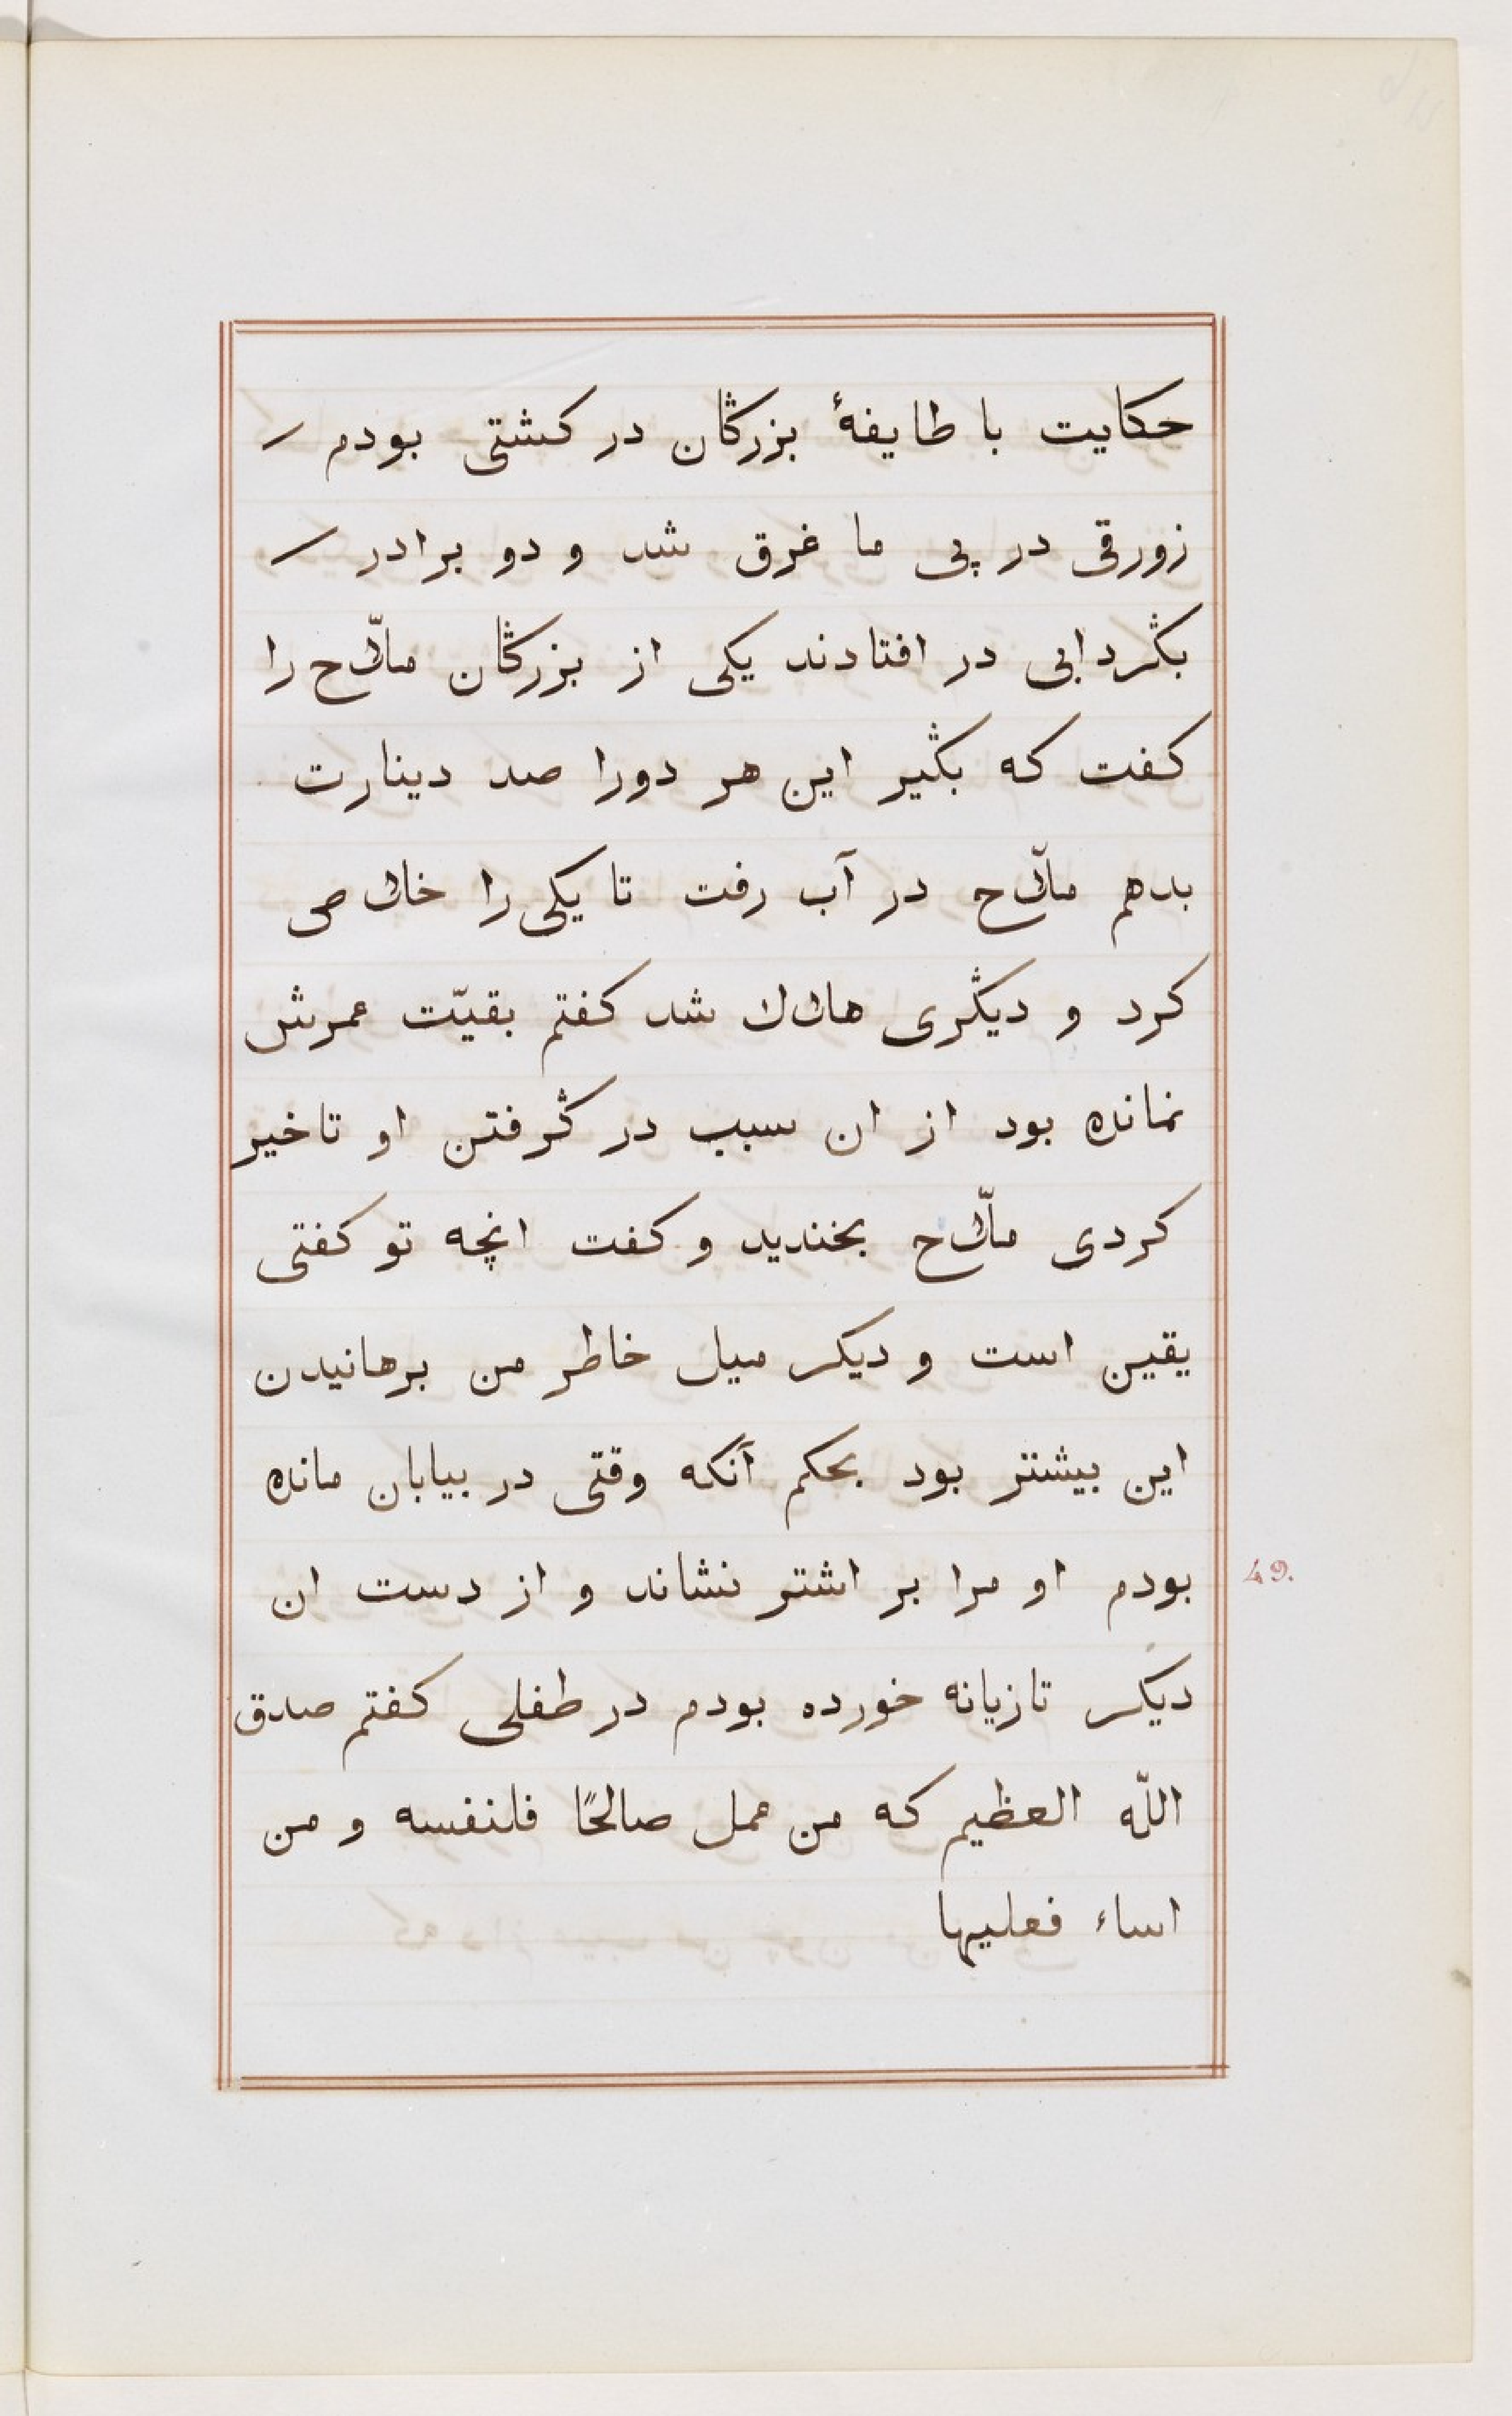 حکایت با طایفهٔ بزرگان در کشتی بودم
زورقی در پی ما غرق شد و دو برادر
بگردابی در افتادند یکی از بزرگان ملّاح را
کفت که بگیر این هر دورا صد دینارت
بدهم ملّاح در آب رفت تا یکی را خلاص
کرد و دیگری هلاك شد کفتم بقیّت عمرش
نمانده بود از ان سبب در گرفتن او تاخیر
کردی ملّاح بخندید و کفت انچه تو کفتی
یقین است و دیکر میل خاطر من برهانیدن
این بیشتر بود بحکم آنکه وقتی در بیابان مانده
بودم او مرا بر اشتر نشاند و از دست ان
49.
دیکر تازیانه خورده بودم در طفلی کفتم صدق
اللّه العظیم که من عمل صالحًا فلنفسه و من
اساء فعلیها